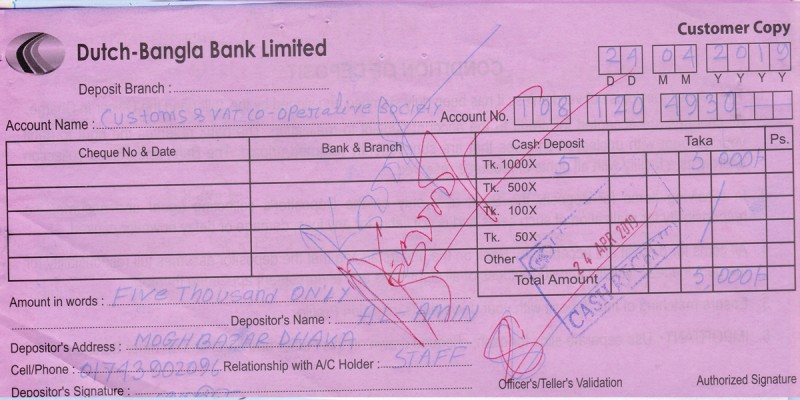 Customer Copy
Dutch-Bangla Bank Limited
24 04 2019
D D M M Y Y Y Y
Deposit Branch :
Account Name : Customs & VAT Co-operative Society Account No. 108 120 4930
Cheque No & Date Bank & Branch Cash Deposit Taka Ps.
Tk. 1000X 5 5 000/-
Tk. 500X
Tk. 100X
Tk. 50X
Other
24 APR 2019
Total Amount 5,000/-
Amount in words : Five Thousand ONLY
Depositor's Name : AL-AMIN
Depositor's Address : MOGHBAZAR DHAKA
Cell/Phone : 01743902096 Relationship with A/C Holder : STAFF
Depositor's Signature :
Officer's/Teller's Validation Authorized Signature